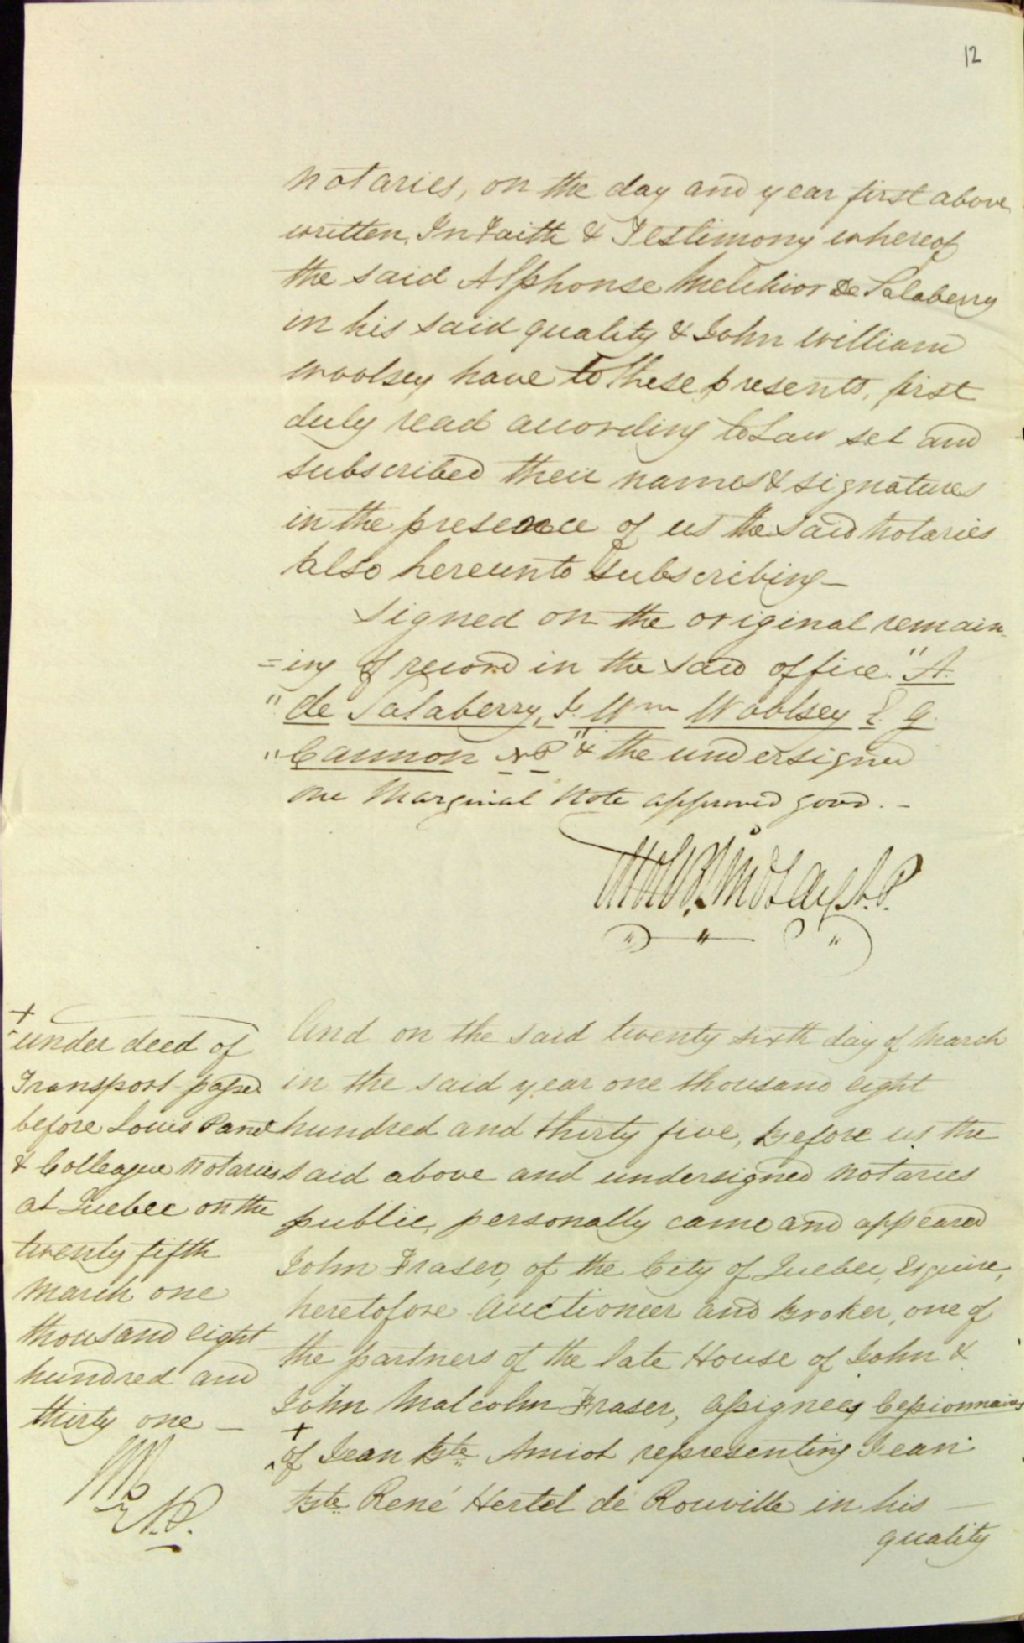 12
notaries, on the day and year first above
written, In Faith & Testimony whereof
the said Alphonse Melchior De Salaberry
in his said quality & John William
Woolsey have to these presents, first
duly read according to Law set and
subscribed their names & signatures
in the presence of us the said Notaries
also hereunto subscribing —
Signed on the original remain
=ing of record in the said office. "A.
" de Salaberry, J. Wm Woolsey E. G.
" Cannon NP" & the undersigned
one Marginal Note approved good. –
N.P.
And on the said twenty sixth day of March
in the said year one thousand eight
hundred and thirty five, before us the
said above and undersigned Notaries
public, personally came and appeared
John Fraser, of the City of Quebec, Esquire,
heretofore Auctioneer and Broker, one of
the partners of the late House of John &
John Malcolm Fraser, assignees Cessionnaires
+
of Jean Bte Amiot representing Jean
Bte René Hertel de Rouville in his —
quality
+
under deed of
Transport passed
before Louis Panet
& Colleague Notaries
at Quebec on the
twenty fifth
March one
thousand eight
hundred and
thirty one —
N.P.